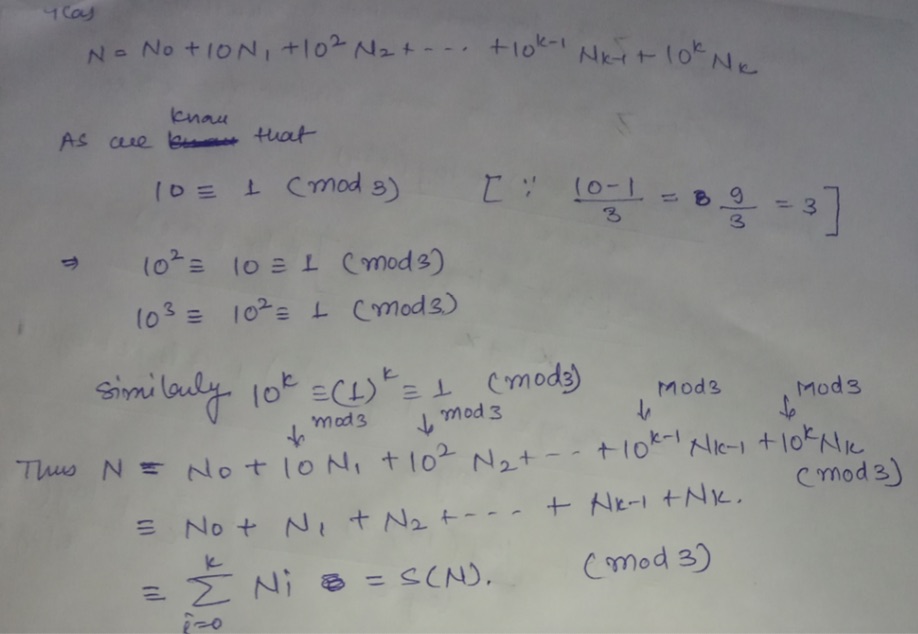 N = N₀ + 10N₁ + 10² N₂ + --- . + 10ᵏ⁻¹ Nₖ₋₁ + 10ᵏ Nₖ
know
As we that
10 ≡ 1 (mod 3) [ ∵ (10-1)/3 = 9/3 = 3 ]
⇒ 10² ≡ 10 ≡ 1 (mod 3)
10³ ≡ 10² ≡ 1 (mod 3)
Similarly 10ᵏ ≡ (1)ᵏ ≡ 1 (mod 3)
mod 3 mod 3 mod 3 mod 3
↓ ↓ ↓ ↓
Thus N ≡ N₀ + 10 N₁ + 10² N₂ + --- + 10ᵏ⁻¹ Nₖ₋₁ + 10ᵏ Nₖ
(mod 3)
≡ N₀ + N₁ + N₂ + ---- + Nₖ₋₁ + Nₖ.
≡ ∑ᵢ₌₀ᵏ Nᵢ = S(N). (mod 3)